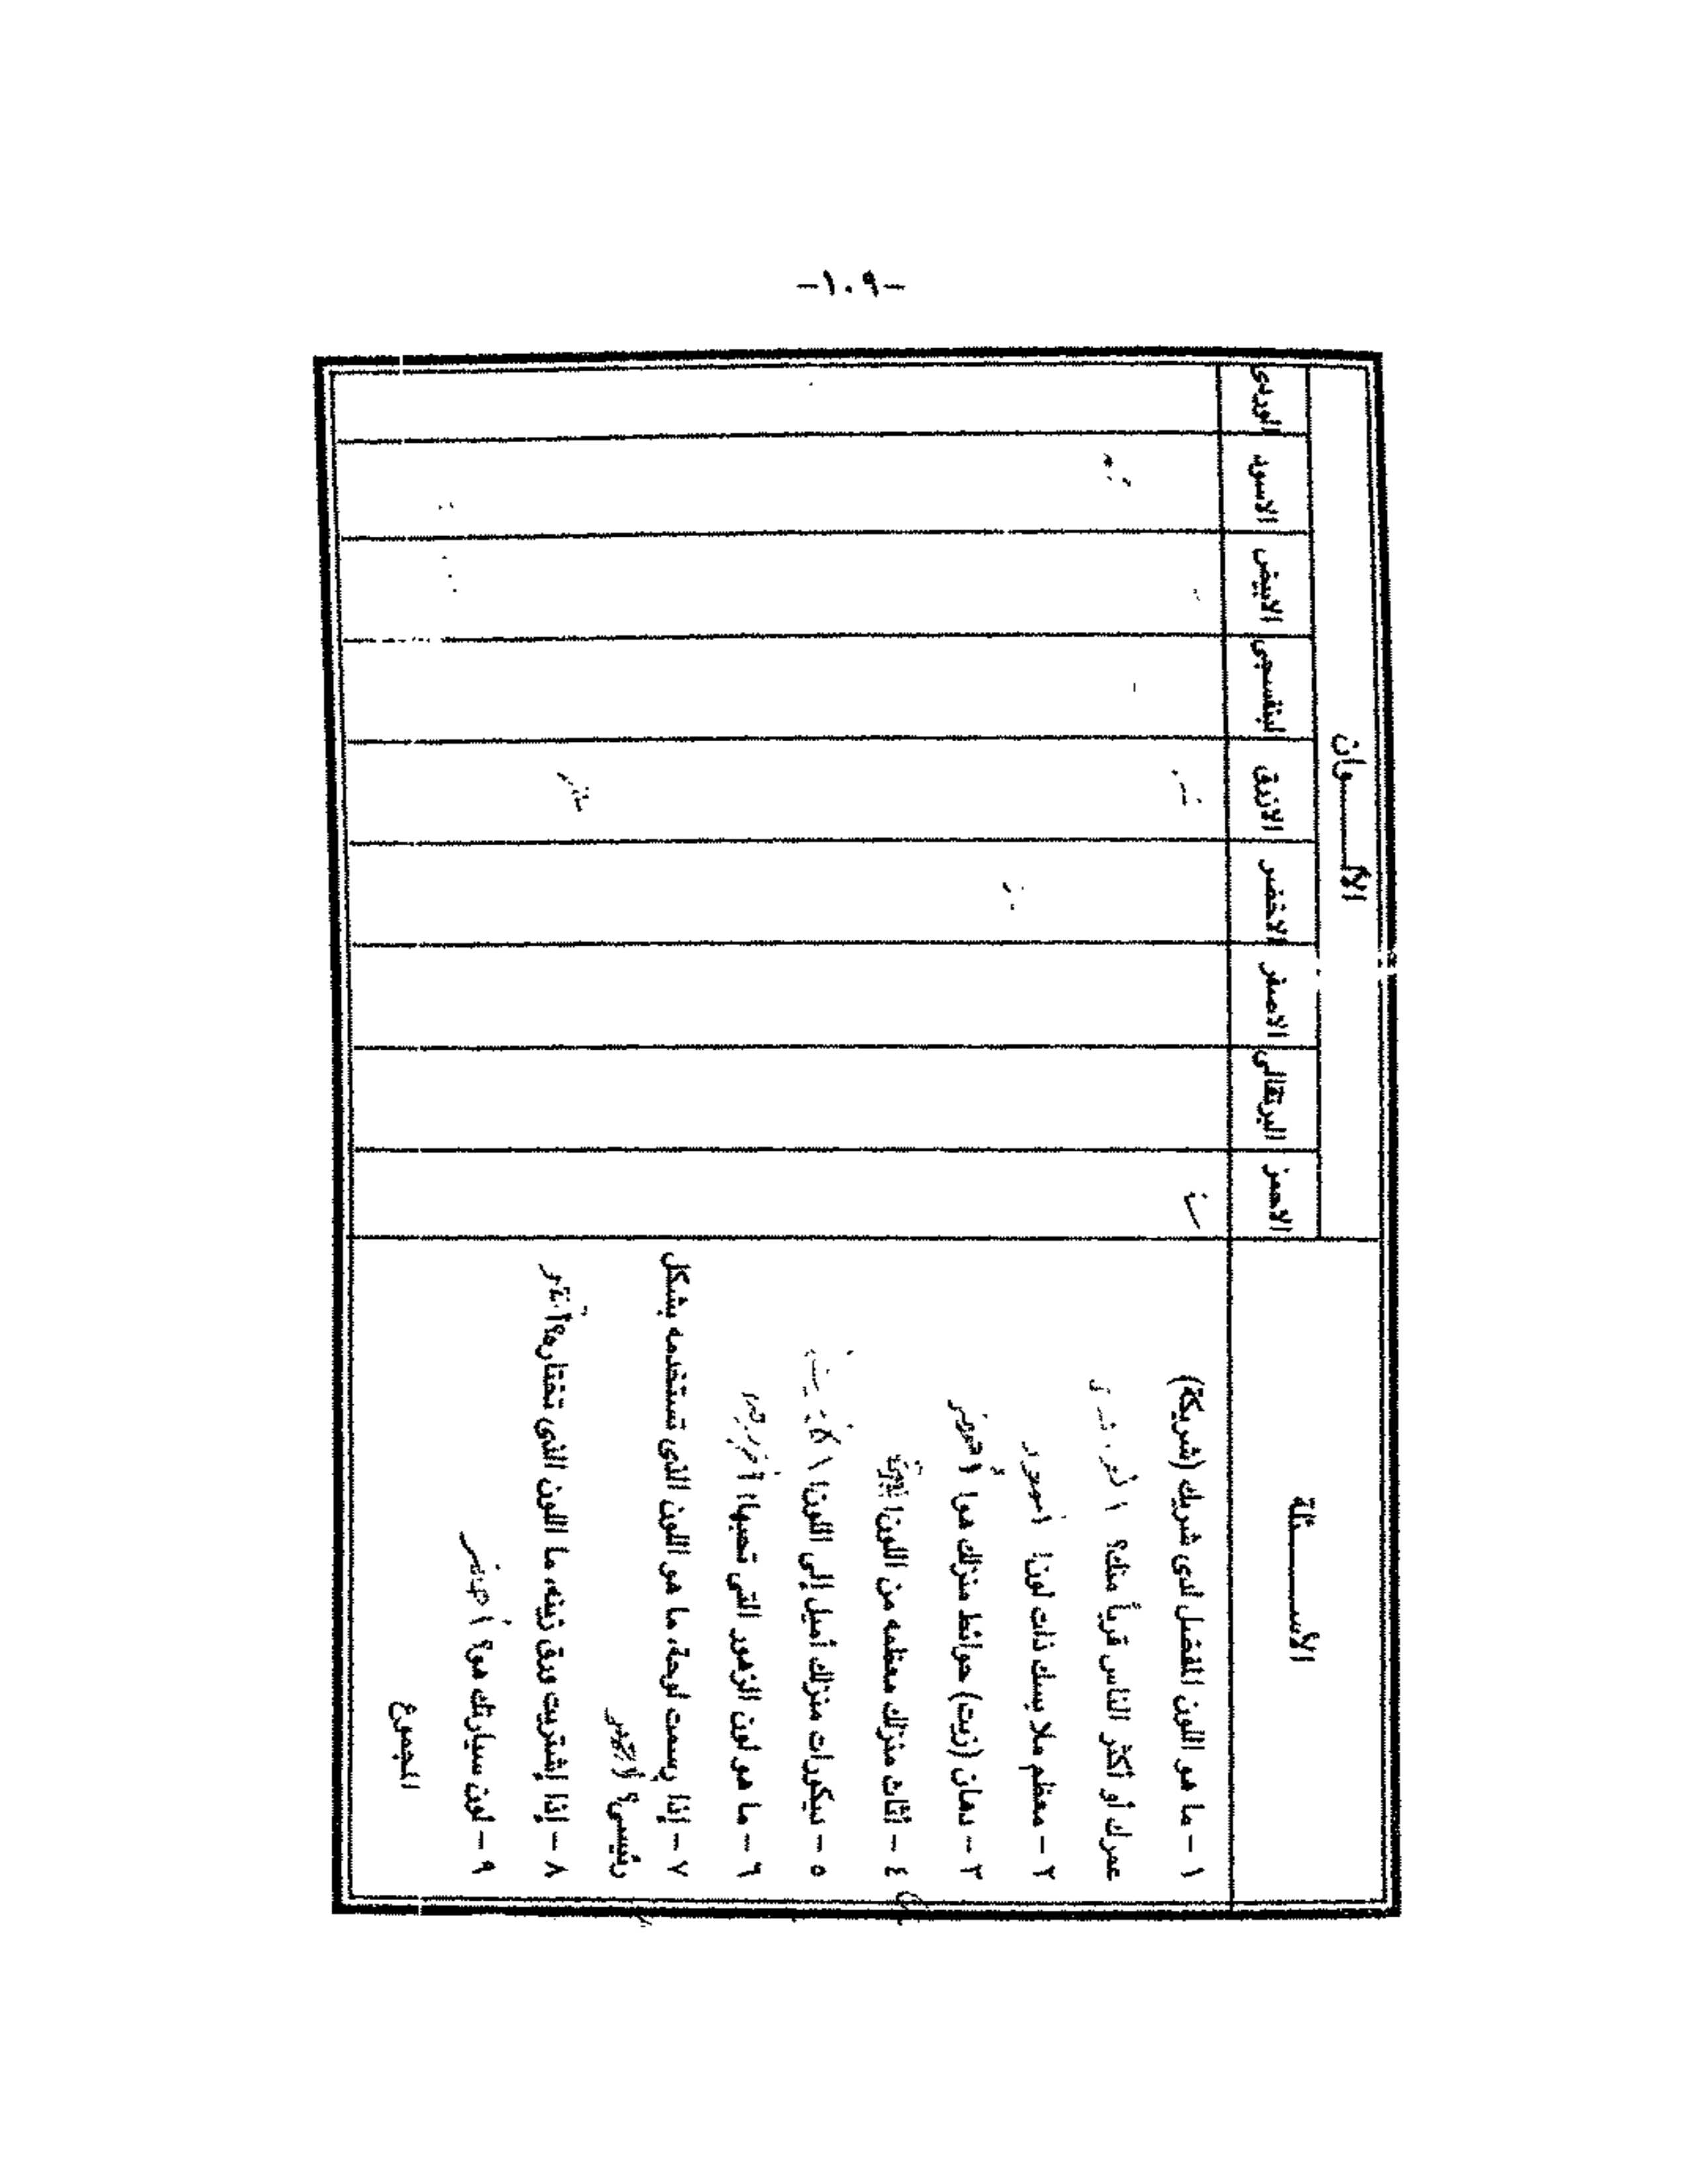 -١٠٩-
الأســـــئلة
الألـــــوان
الاحمر
البرتقالى
الاصفر
الاخضر
الازرق
البنفسجى
الابيض
الاسود
الوردى
١ - ما هو اللون المفضل لدى شريك (شريكة)
عمرك أو أكثر الناس قرباً منك؟
٢ - معظم ملابسك ذات لون؟
٣ - دهان (زيت) حوائط منزلك هو؟
٤ - أثاث منزلك معظمه من اللون؟
٥ - ديكورات منزلك أميل إلى اللون؟
٦ - ما هو لون الزهور التى تحبها؟
٧ - إذا رسمت لوحة، ما هو اللون الذى تستخدمه بشكل
رئيسى؟
٨ - إذا إشتريت ورق زينه، ما اللون الذى تختاره؟
٩ - لون سيارتك هو؟
المجموع